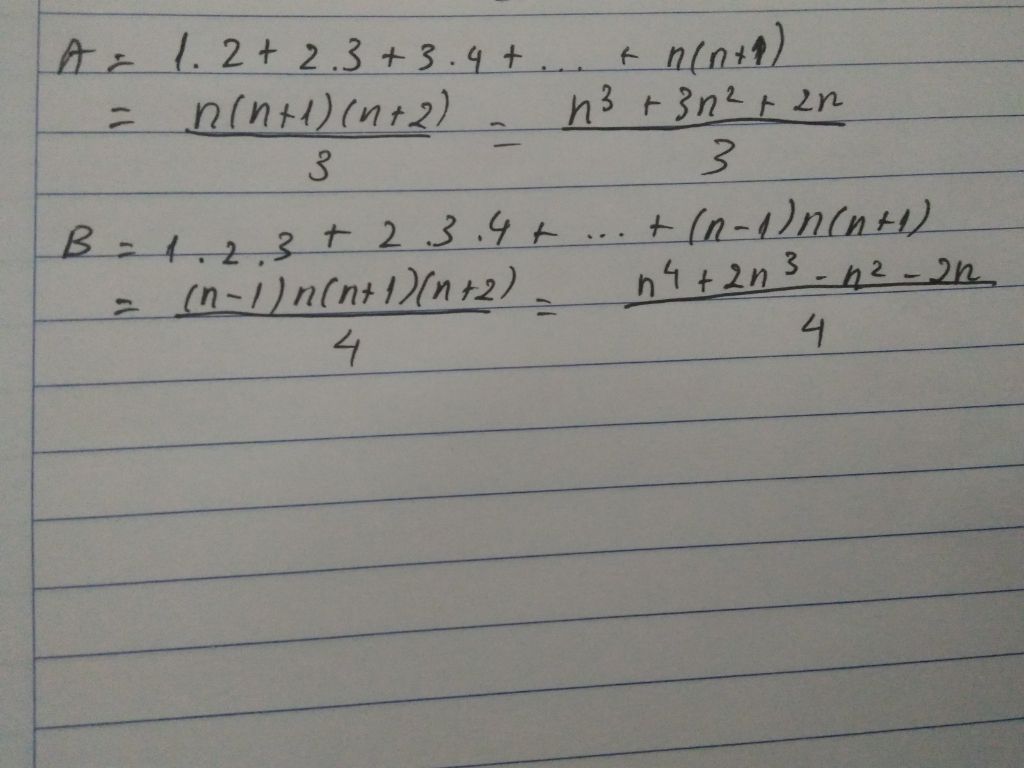 A = 1.2 + 2.3 + 3.4 + ... + n(n+1)
= n(n+1)(n+2)/3 = n³ + 3n² + 2n/3
B = 1.2.3 + 2.3.4 + ... + (n-1)n(n+1)
= (n-1)n(n+1)(n+2)/4 = n⁴ + 2n³ - n² - 2n/4